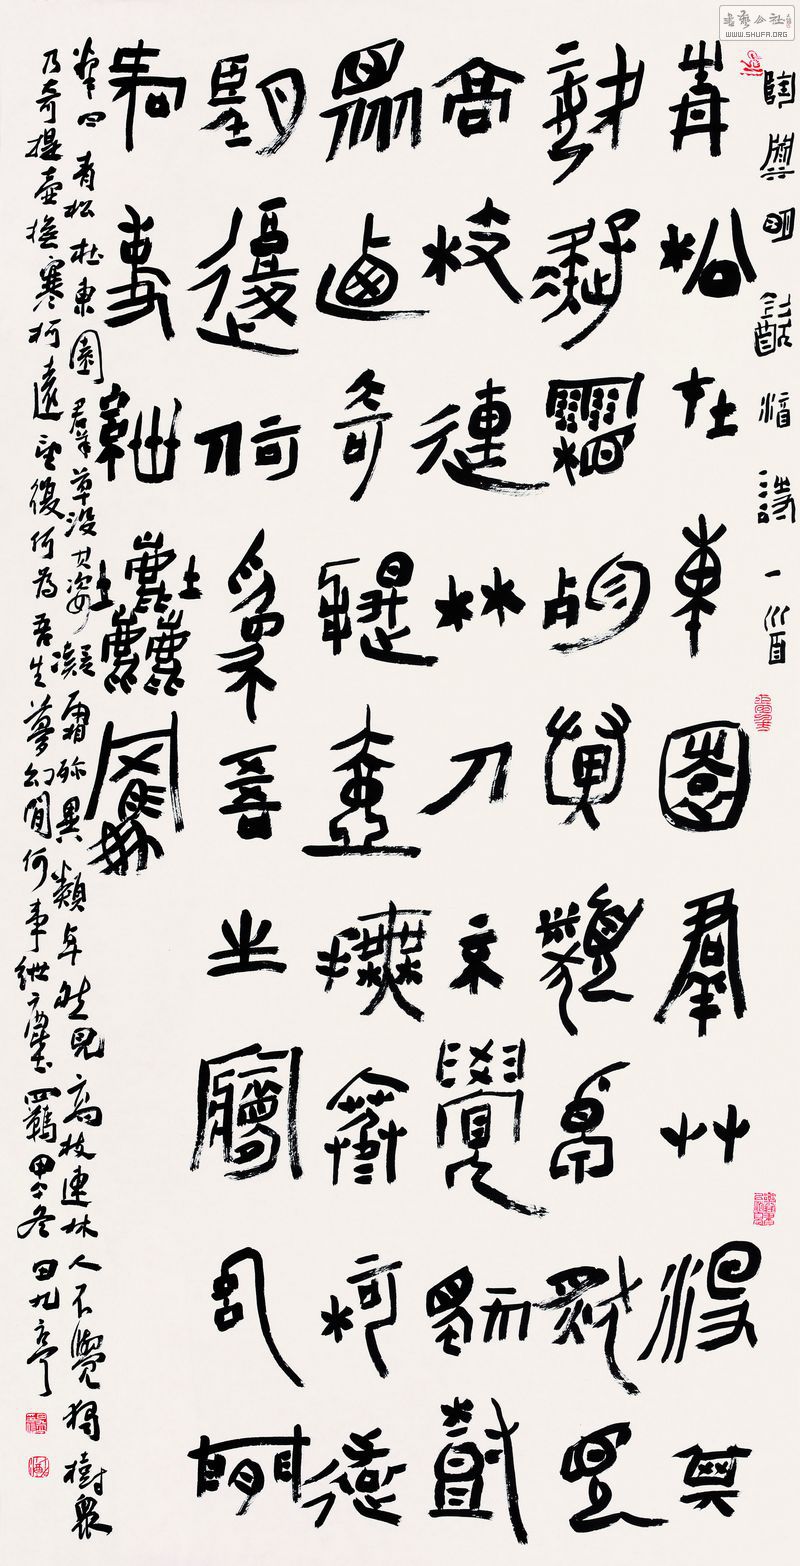 書藝公社
WWW.SHUFA.ORG
陶淵明飲酒詩一首
青松在東園羣艸沒其
姿凝霜殄異類卓然見
高枝連林人不覺獨樹
眾乃奇提壺撫寒柯遠
望復何為吾生夢幻間
何事紲塵羈
曰青松在東園羣草没其姿凝霜殄異類卓然見高枝連林人不覺獨樹眾
乃奇提壺撫寒柯遠望復何為吾生夢幻間何事紲塵羈甲午冬